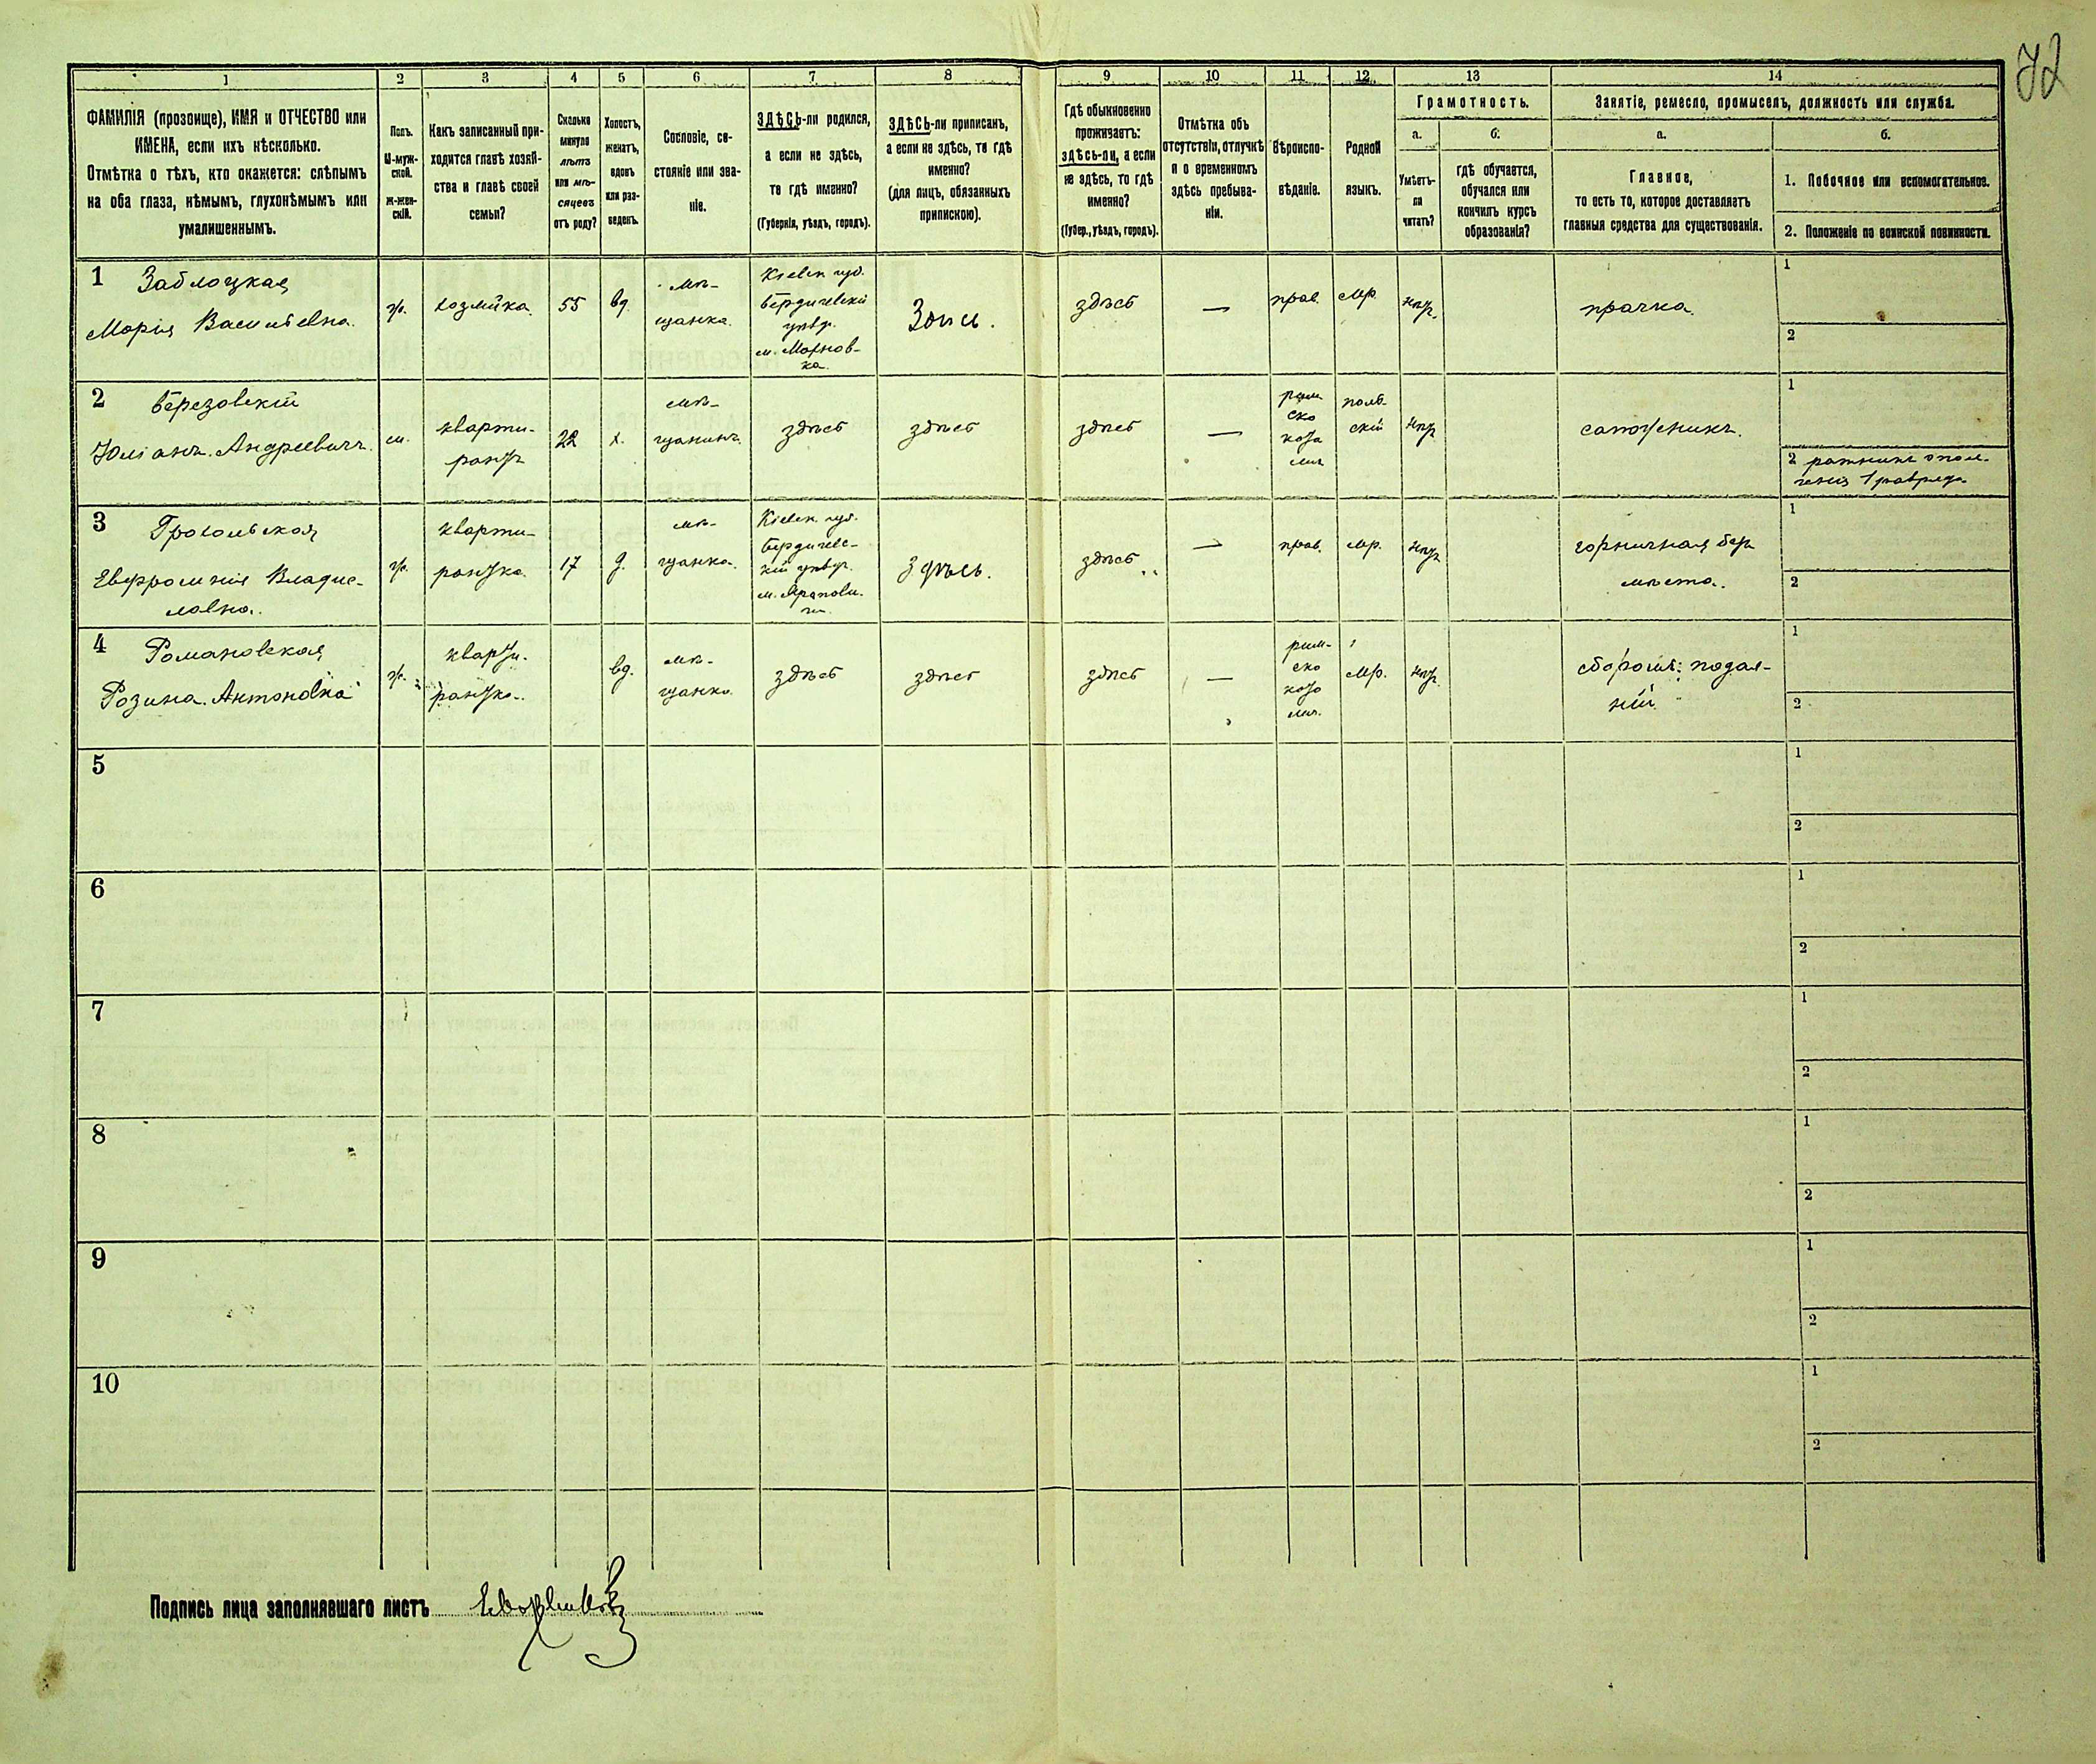 72
1 2 3 4 5 6 7 8 9 10 11 12 13 14
ФАМИЛІЯ (прозвище), ИМЯ и ОТЧЕСТВО или
ИМЕНА, если ихъ нѣсколько.
Отмѣтка о тѣхъ, кто окажется: слѣпымъ
на оба глаза, нѣмымъ, глухонѣмымъ или
умалишеннымъ.
Полъ.
М-муж-
ской.
ж-жен-
скій.
Какъ записанный при-
ходится главѣ хозяй-
ства и главѣ своей
семьи?
Сколько
минуло
лѣтъ
или мѣ-
сяцевъ
отъ роду?
Холостъ,
женатъ,
вдовъ
или раз-
веденъ.
Сословіе, со-
стояніе или зва-
ніе.
ЗДѢСЬ-ли родился,
а если не здѣсь,
то гдѣ именно?
(Губернія, уѣздъ, городъ).
ЗДѢСЬ-ли приписанъ,
а если не здѣсь, то гдѣ
именно?
(для лицъ, обязанныхъ
припискою).
Гдѣ обыкновенно
проживаетъ:
здѣсь-ли, а если
не здѣсь, то гдѣ
именно?
(Губер., уѣздъ, городъ).
Отмѣтка объ
отсутствіи, отлучкѣ
и о временномъ
здѣсь пребыва-
ніи.
Вѣроиспо-
вѣданіе.
Родной
языкъ.
Грамотность.
а.
Умѣетъ-
ли
читать?
б.
гдѣ обучается,
обучался или
кончилъ курсъ
образованія?
Занятіе, ремесло, промыселъ, должность или служба.
а.
Главное,
то есть то, которое доставляетъ
главныя средства для существованія.
б.
1. Побочное или вспомогательное.
2. Положеніе по воинской повинности.
1 Заблоцкая
Марія Васильевна.
ж.
хозяйка
55
вд.
мѣ-
щанка.
Кіевск. губ.
Бердичевскій
уѣзд.
м. Махнов-
ка.
Здѣсь.
здѣсь
—
прав.
мр.
нѣт.
прачка.
1
2
2 Березовскій
Юліанъ Андреевичъ.
м.
кварти-
рантъ
22
х.
мѣ-
щанинъ.
здѣсь
здѣсь
здѣсь
—
рим-
ско
като
лич
поль-
скій
нѣт
сапожникъ.
1
2 ратникъ опол-
ченія 1 разряда
3
Евфросинія Владис-
лавна.
ж.
кварти-
рантка.
17
д.
мѣ-
щанка.
Кіевск. губ.
Бердичев-
скій уѣзд.
Здѣсь.
здѣсь
—
прав.
мр.
нѣт
горничная безъ
мѣста.
1
2
4 Романовская
Розина Антоновна
ж.
кварти-
рантка.
вд.
мѣ-
щанка.
здѣсь
здѣсь
здѣсь
—
рим-
ско
като
лич.
мр.
нѣт.
сборомъ подая-
ній
1
2
5
1
2
6
1
2
7
1
2
8
1
2
9
1
2
10
1
2
Подпись лица заполнявшаго листъ